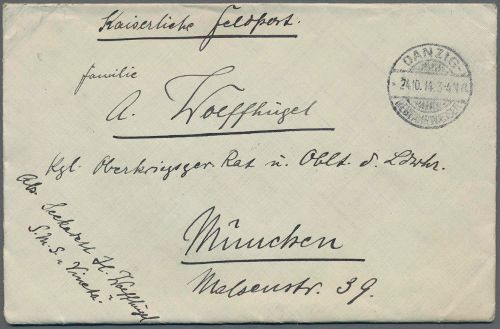 Kaiserliche Feldpost.
DANZIG-
24.10.14. 3-4 N
NEUFAHRWASSER
Familie
A. Woeffhügel
Kgl. Oberkriegsger. Rat u. Oblt. d. Ldwhr.
München
Maisenstr. 39.
Abs. Seekadett H. Woeffhügel
S.M.S. „Vineta"